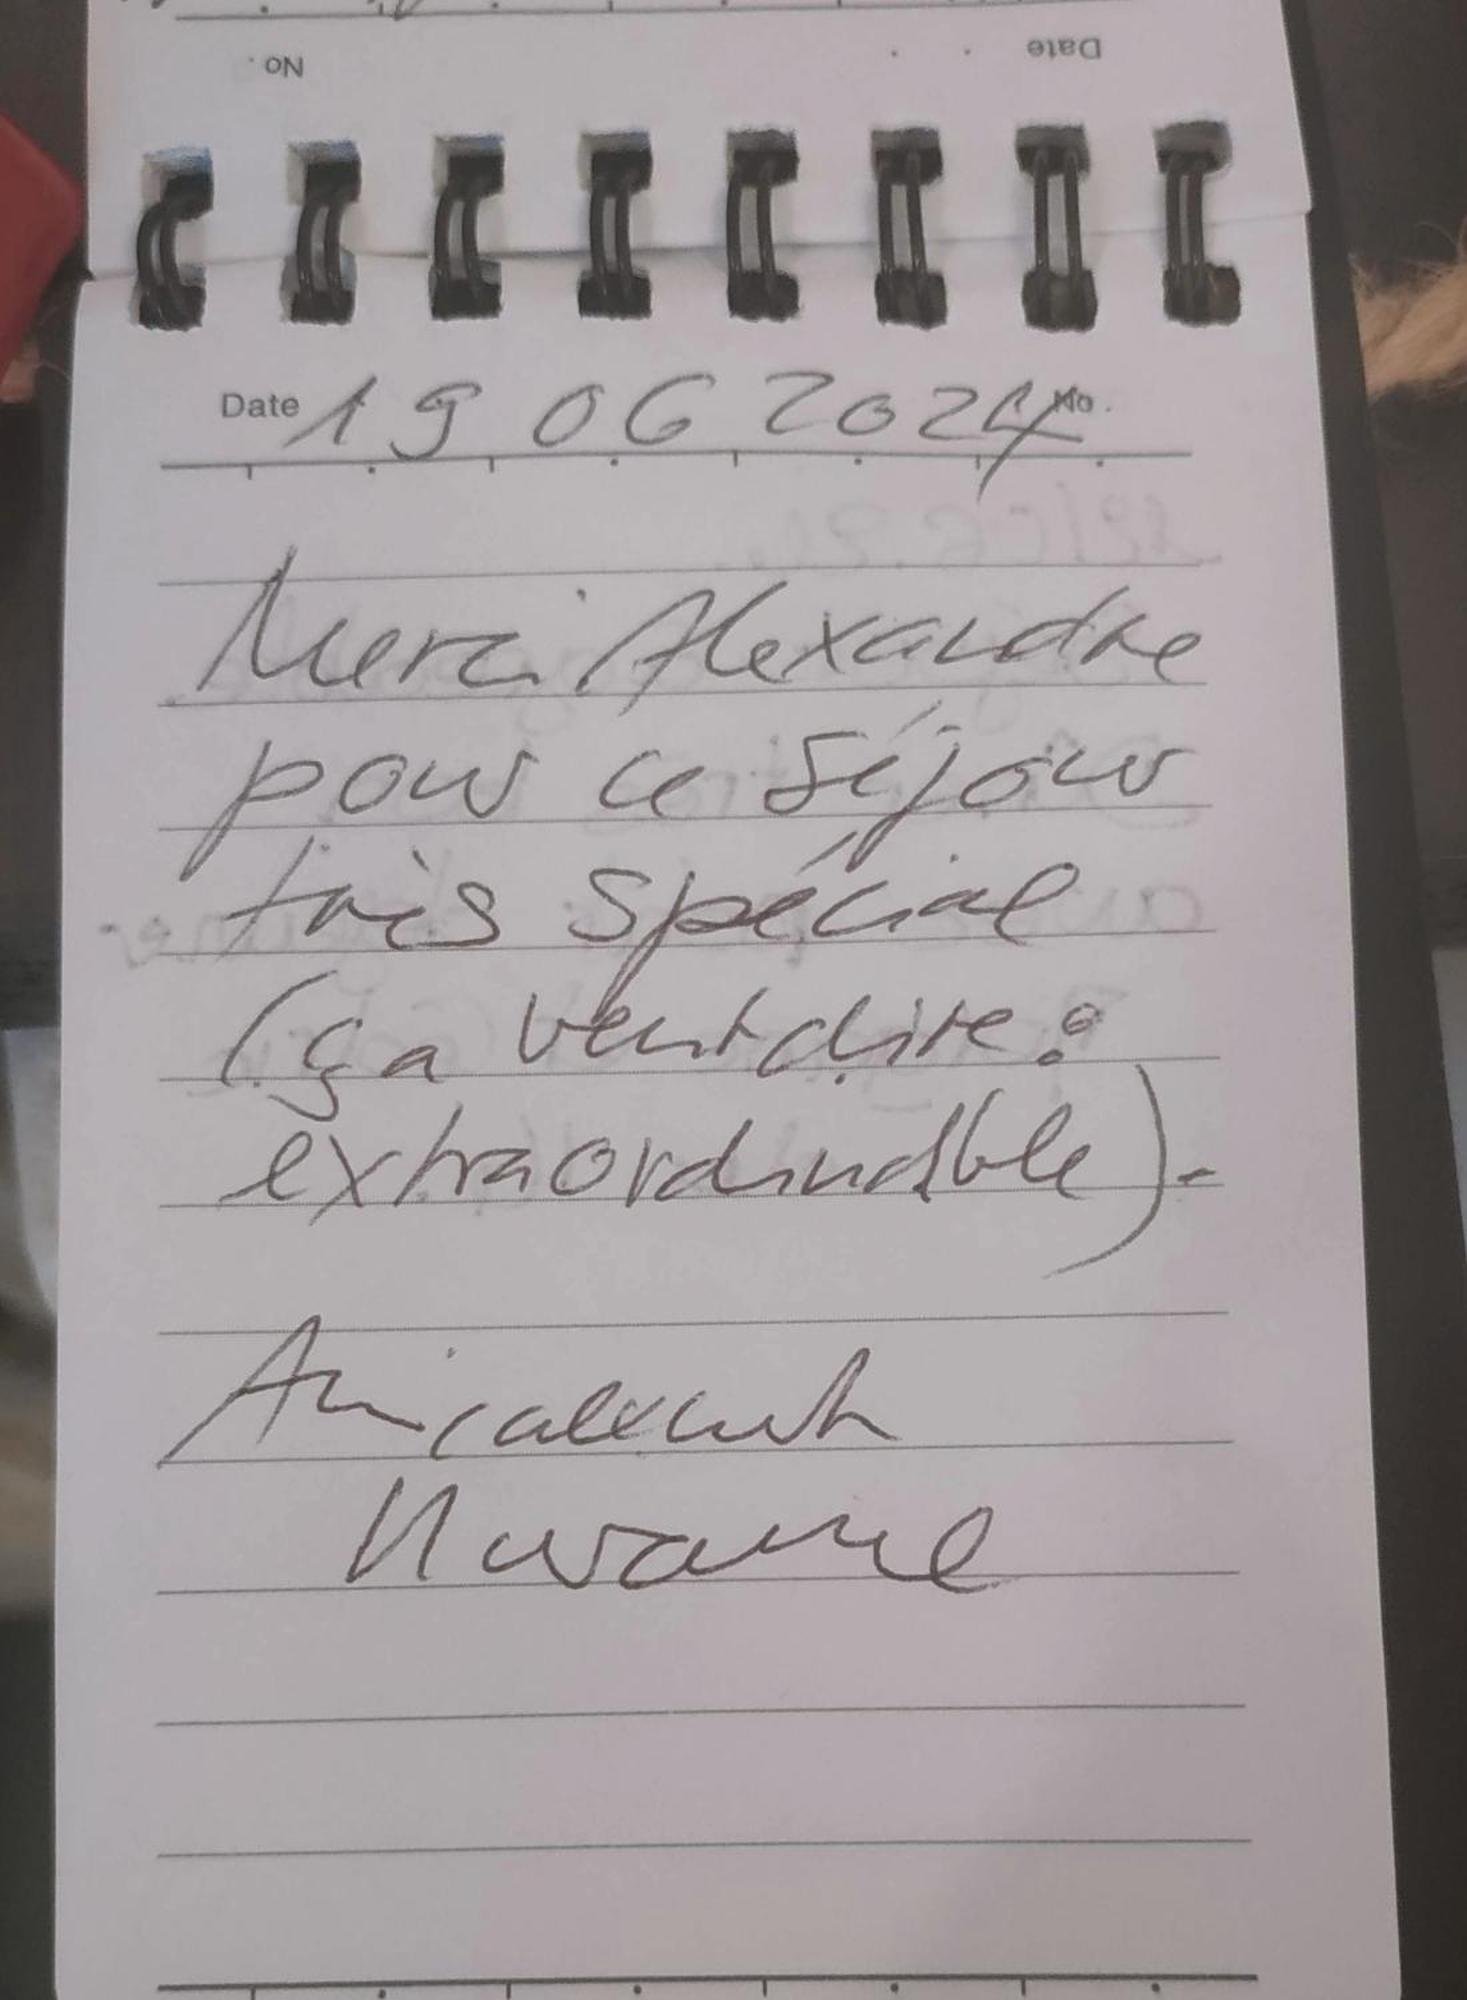 No. Date
Date 19 06 2024 No.
Merci Alexandre
pour ce séjour
très spécial
(ça veut dire :
).
Amicalement